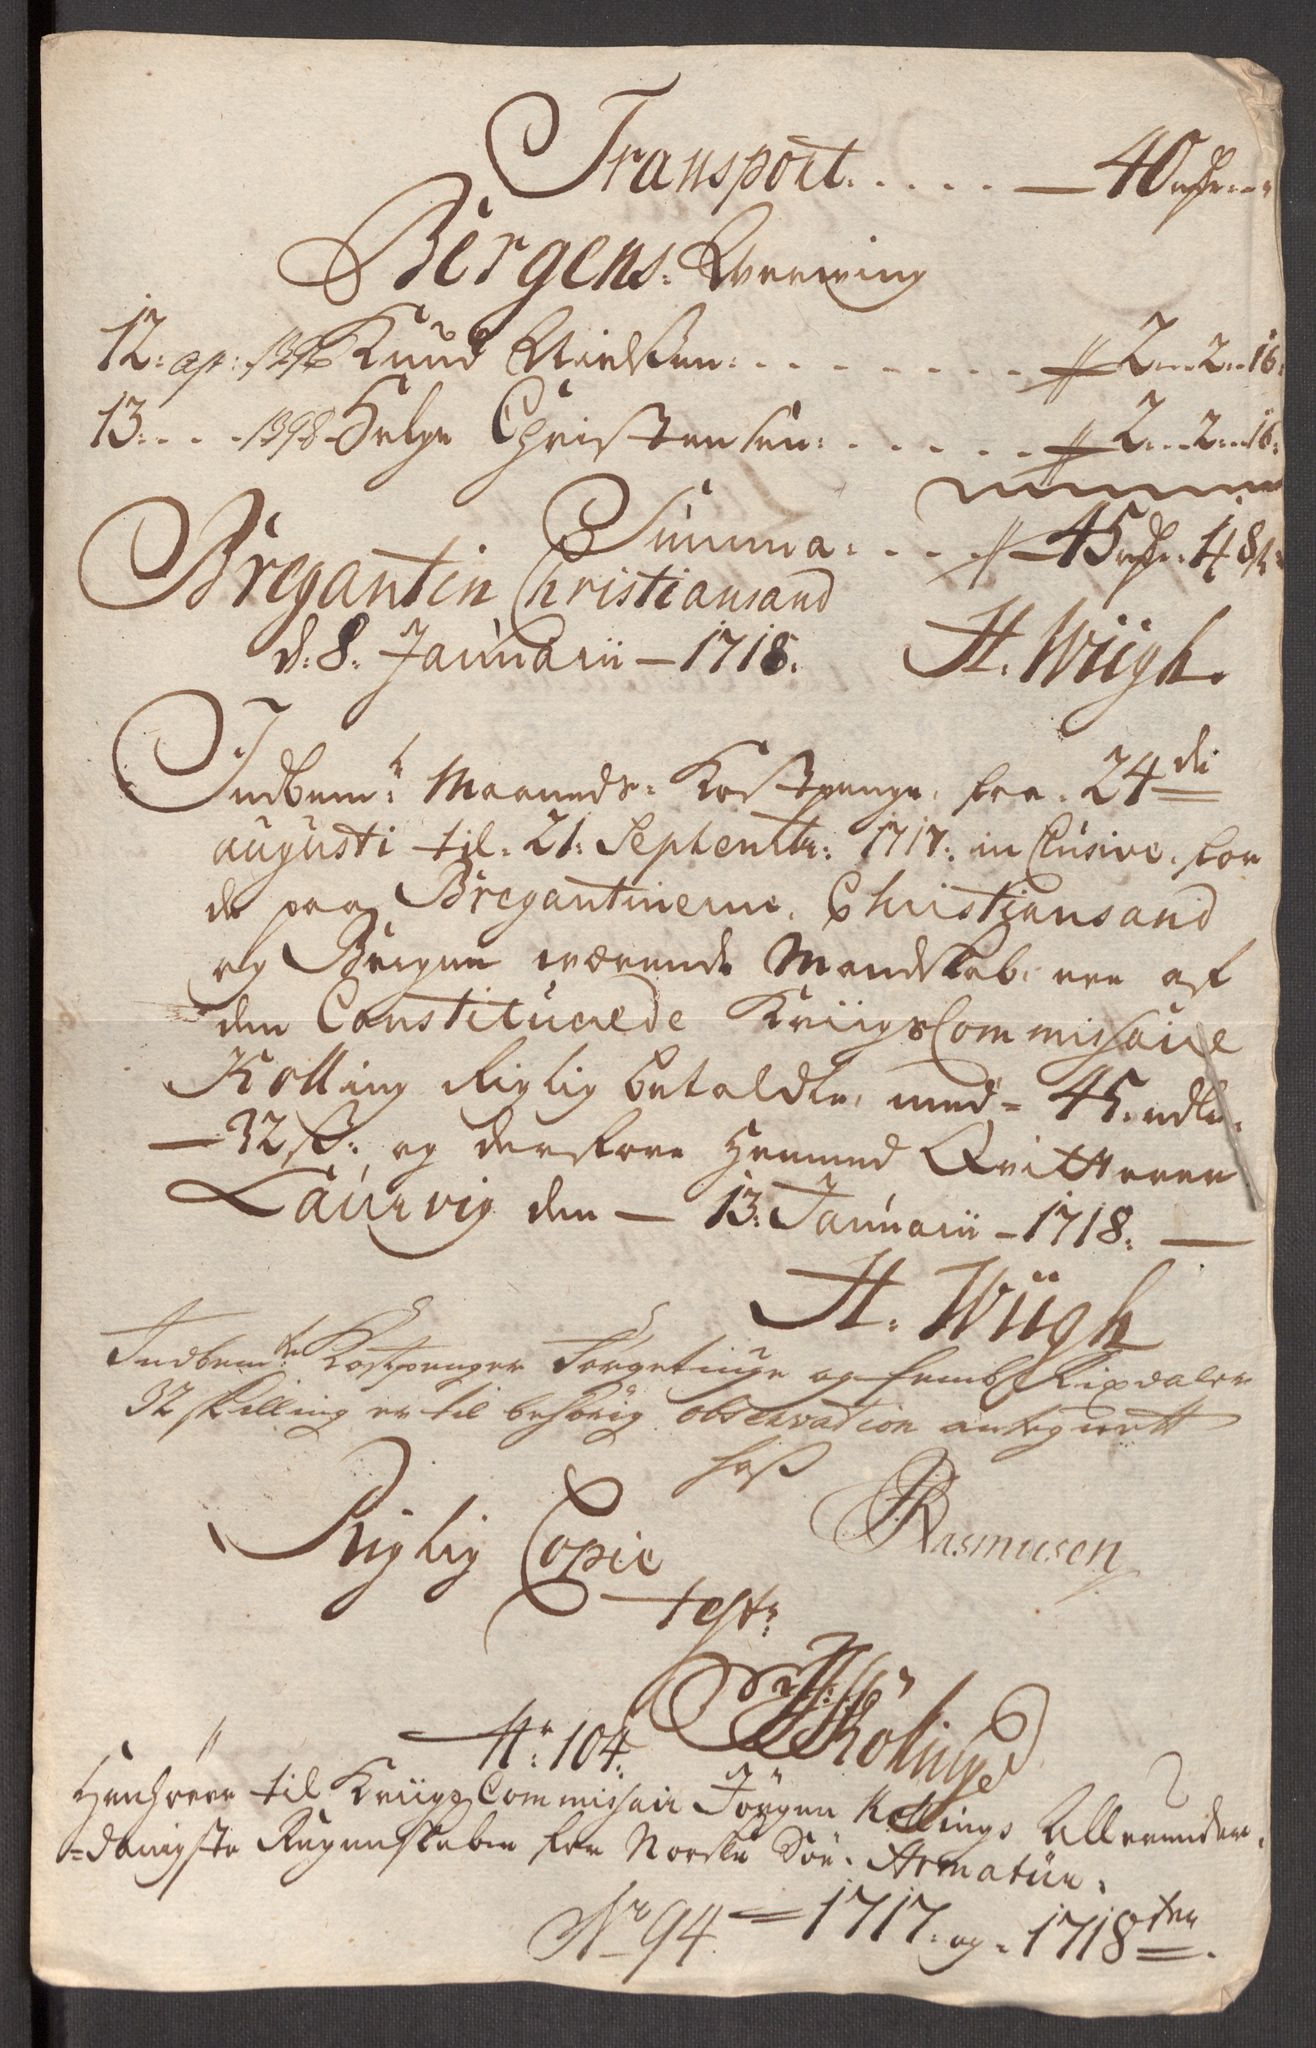 Transport. . . . . — 40 rdr. - -
Bergens: Hverving
12: ap: Knud Nielsen: . . . . . . . . 2. - 2. - 16:
13: . . . 1398 Helge Christensen: . . . . . . 2. - 2. - 16:
Summa: . . . 45 rdr. 1 ¥ 8 s:
Bregantin Christiansand
d: 8. Januarii – 1718. H. Wiigh.
Indbem:te Maaneds: Kostpenge, fra. 24de
augusti til. 21: Septembr: 1717: inclusive. for
de paa Bregantinerne, Christiansand
og Bergen værende Mandskab: ere af
den Constituerede Kriigs Commissaire
Kolling Rigtig betaldte, med = 45. rdlr.
— 32 s: og derfore hermed Qvitterer
Laurvig den — 13: Januarii – 1718: —
H. Wiigh
Indbem:te Kostpenger Førgetiuge og fembs Rixdaler
32 skilling er til behørig observation antegnett
hoss
Rasmusen
Rigtig Copie
test:
JKölling
Nr: 104:
Henhører til Kriigs Commissair Jörgen Kollings Allerunder=
=danigste Regenskaber for Norske Söe. Armatur:
No 94 = 1717. og. 1718ten.